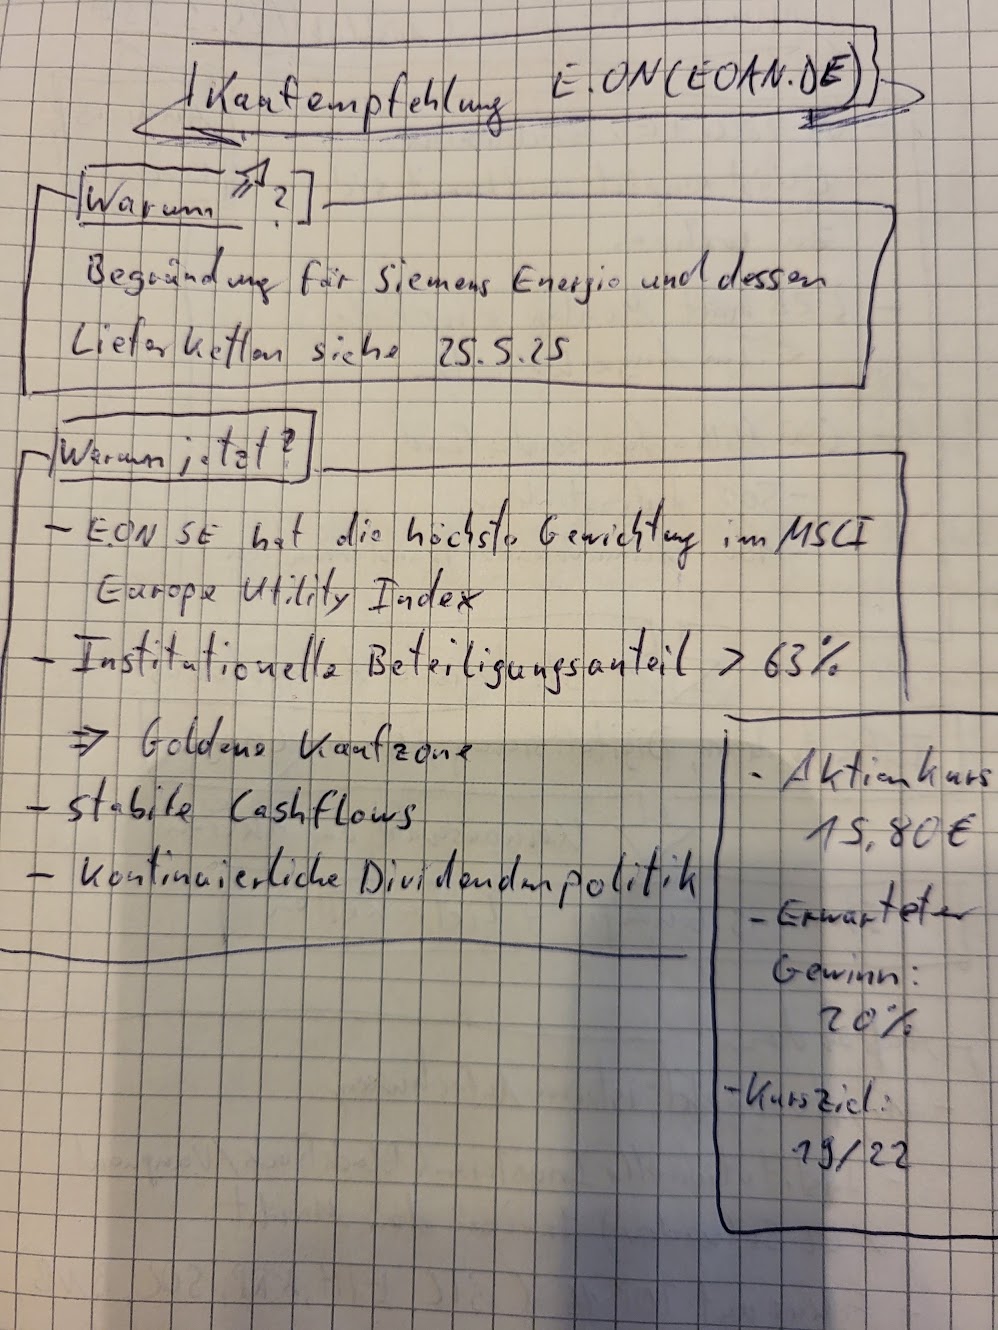 Kaufempfehlung E.ON(EOAN.DE)
Warum ?
Begründung für Siemens Energie und dessen
Lieferketten siehe 25.5.25
Warum jetzt?
- E.ON SE hat die höchste Gewichtung im MSCI
Europe Utility Index
- Institutionelle Beteiligungsanteil > 63%
⇒ Goldene Kaufzone
- Stabile Cashflows
- Kontinuierliche Dividendenpolitik
- Aktienkurs
15,80€
- Erwarteter
Gewinn:
20%
- Kursziel:
19/22